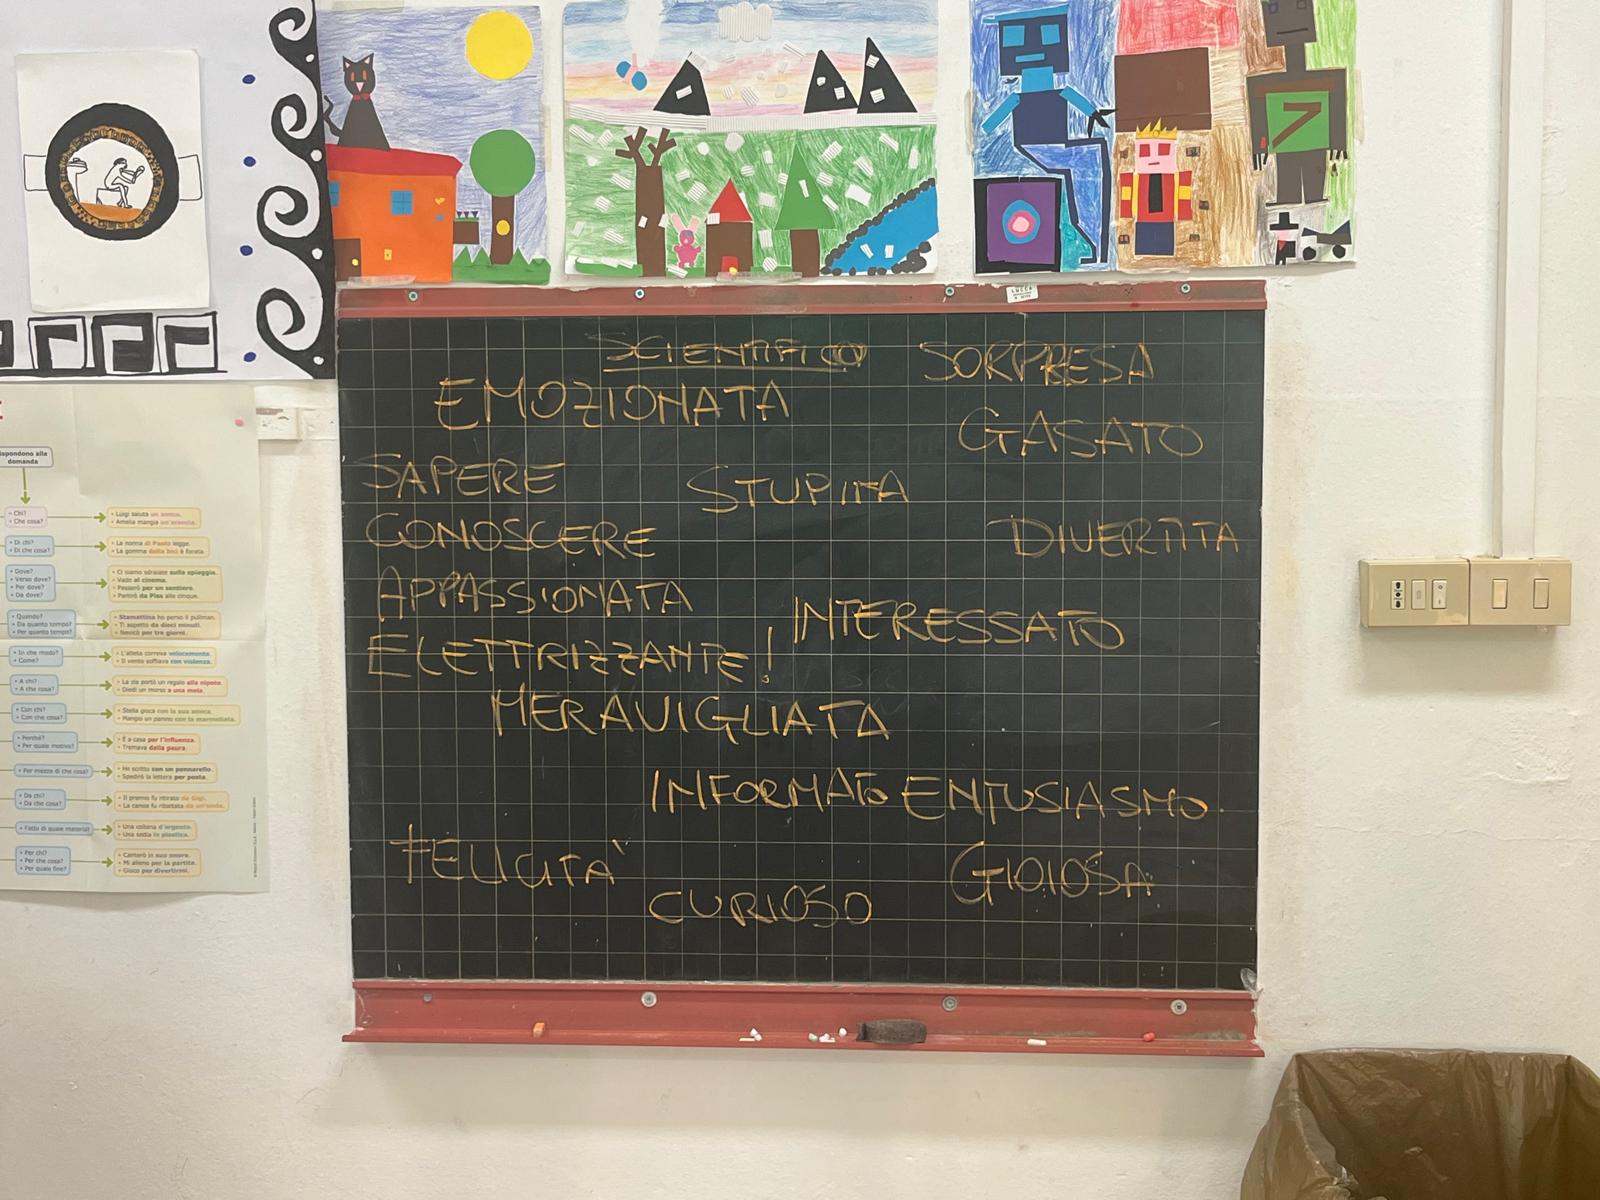 SCIENTIFICO
SORPRESA
EMOZIONATA
GASATO
SAPERE
STUPITA
CONOSCERE
DIVERTITA
APPASSIONATA
INTERESSATO
ELETTRIZZANTE!
MERAVIGLIATA
INFORMATO
ENTUSIASMO.
FELICITÀ
GIOIOSA
CURIOSO
LUCCA
rispondono alla
domanda
• Chi?
• Che cosa?
• Luigi saluta un amico.
• Amelia mangia un'arancia.
• Di chi?
• Di che cosa?
• La nonna di Paolo legge.
• La gomma della bici è forata.
• Dove?
• Verso dove?
• Per dove?
• Da dove?
• Ci siamo sdraiate sulla spiaggia.
• Vado al cinema.
• Passerò per un sentiero.
• Partirò da Pisa alle cinque.
• Quando?
• Da quanto tempo?
• Per quanto tempo?
• Stamattina ho perso il pullman.
• Ti aspetto da dieci minuti.
• Nevicò per tre giorni.
• In che modo?
• Come?
• L'atleta correva velocemente.
• Il vento soffiava con violenza.
• A chi?
• A che cosa?
• La zia portò un regalo alla nipote.
• Diedi un morso a una mela.
• Con chi?
• Con che cosa?
• Stella gioca con la sua amica.
• Mangio un panino con la marmellata.
• Perché?
• Per quale motivo?
• È a casa per l'influenza.
• Tremava dalla paura.
• Per mezzo di che cosa?
• Ho scritto con un pennarello.
• Spedirò la lettera per posta.
• Da chi?
• Da che cosa?
• Il premio fu ritirato da Gigi.
• La canoa fu ribaltata da un'onda.
• Fatto di quale materia?
• Una collana d'argento.
• Una sedia in plastica.
• Per chi?
• Per che cosa?
• Per quale fine?
• Canterò in suo onore.
• Mi alleno per la partita.
• Gioco per divertirmi.